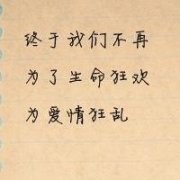 终于我们不再
为了生命狂欢
为爱情狂乱